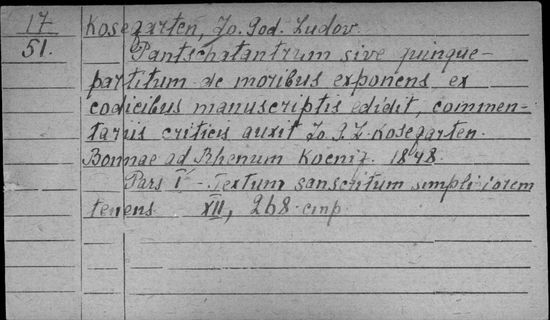 17
51.
Kosegarten, Jo. God. Ludov.
Pantschatantrum sive quinque-
partitum de moribus exponens ex
codicibus manuscriptis edidit, commen-
tariis criticis auxit Jo. G. L. Kosegarten.
Bonnae ad Rhenum Koenig. 1848.
Pars I - Textum sanscritum simpliciorem
tenens XII, 268 cmp.